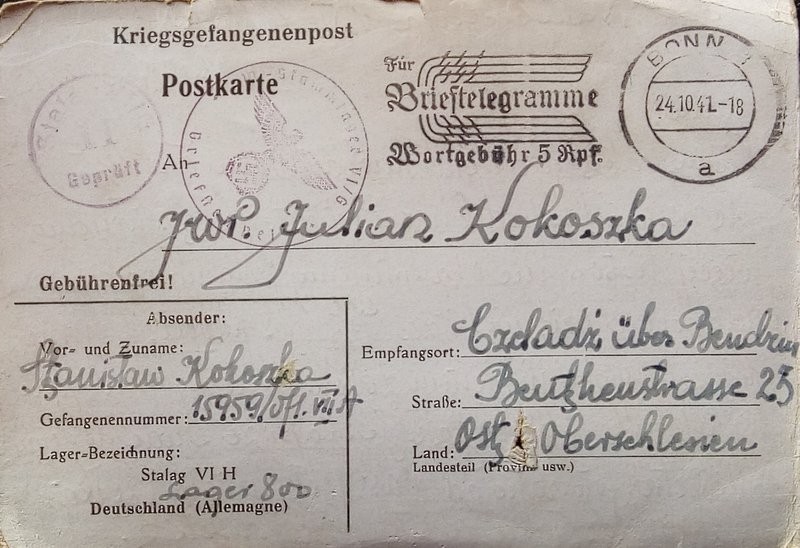 Kriegsgefangenenpost
Postkarte
Geprüft
Für
Brieftelegramme
Wortgebühr 5 Rpf.
BONN
24.10.41.-18
a
An
Jwp. Julian Kokoszka
Gebührenfrei!
Absender:
Vor- und Zuname:
Stanisław Kokoszka
Gefangenennummer: 15959/Ofl. VII A
Lager-Bezeichnung:
Stalag VI H
Lager 800
Deutschland (Allemagne)
Empfangsort: Czeladź über Bendzin
Straße: Beuthenstrasse 25
Land: Ost Oberschlesien
Landesteil (Provinz usw.)